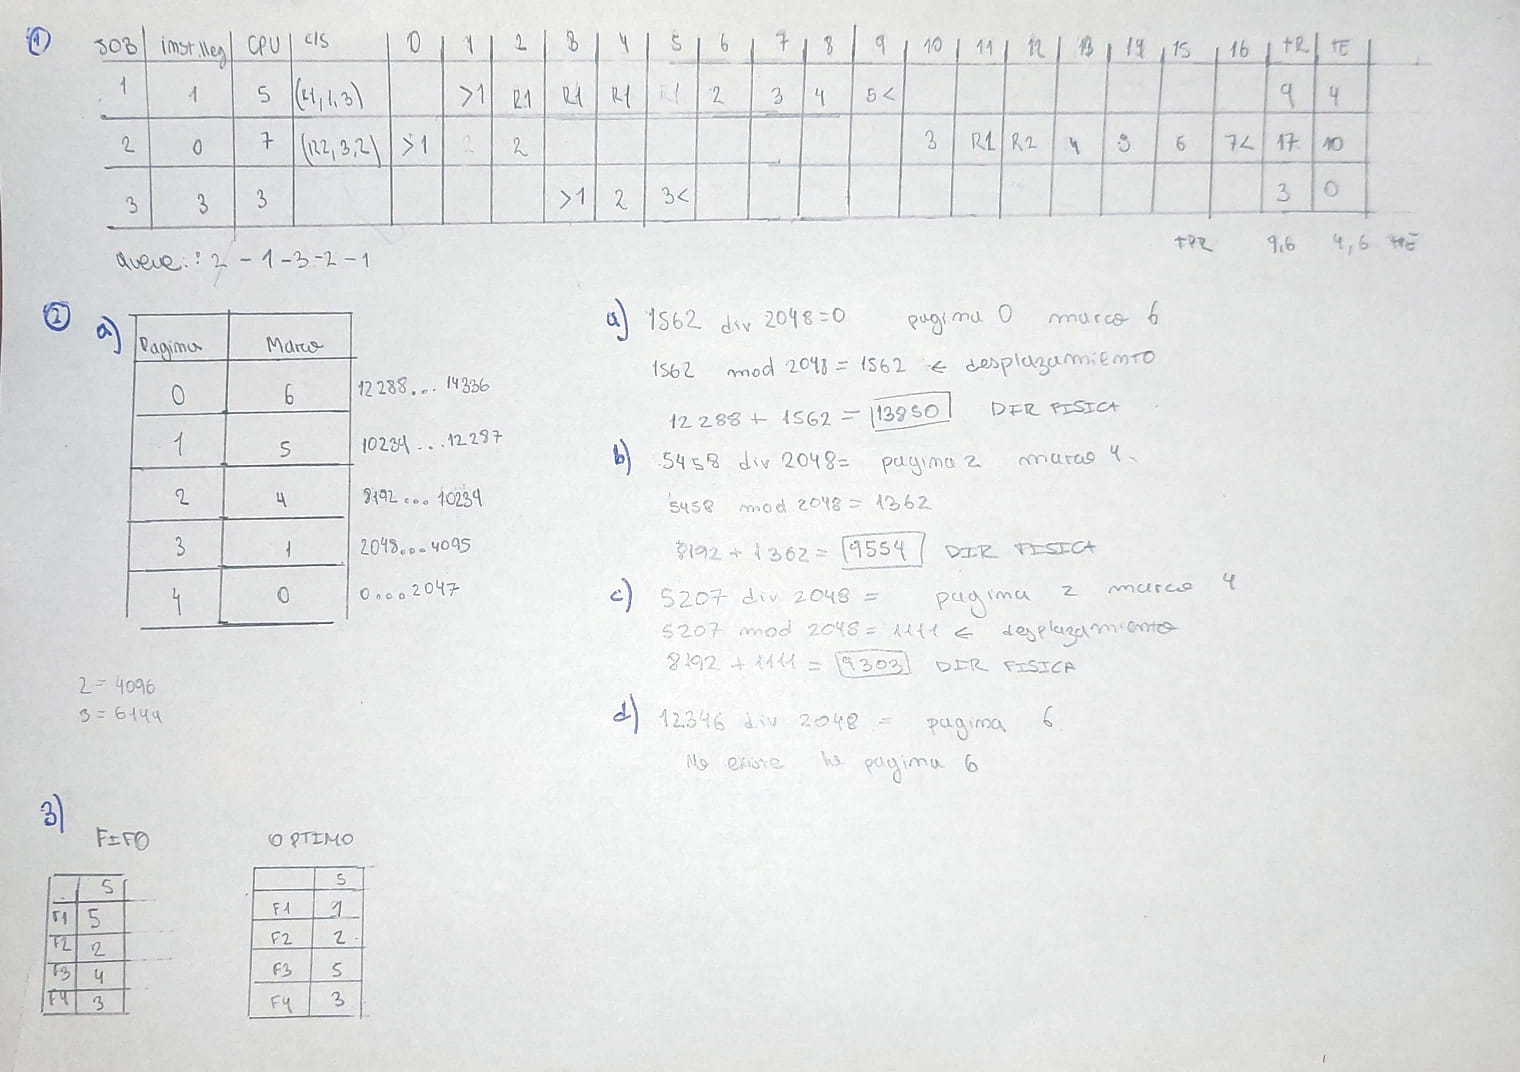 1
JOB inst.lleg CPU E/S 0 1 2 3 4 5 6 7 8 9 10 11 12 13 14 15 16 tR tE
1 1 5 (R1,1,3) >1 R1 R1 R1 2 3 4 5< 9 4
2 0 7 (R2,3,2) >1 2 3 R1 R2 4 5 6 7< 17 10
3 3 3 >1 2 3< 3 0
TPR 9,6 4,6 TPE
Queue: 2 - 1 - 3 - 2 - 1
2
a)
Pagina Marco
0 6 12288... 14336
1 5 10234...12287
2 4 8192...10234
3 1 2048...4095
4 0 0....2047
2 = 4096
3 = 6144
a) 1562 div 2048 = 0 pagina 0 marco 6
1562 mod 2048 = 1562 ← desplazamiento
12288 + 1562 = 13850 DIR FISICA
b) 5458 div 2048 = pagina 2 marco 4.
5458 mod 2048 = 1362
8192 + 1362 = 9554 DIR FISICA
c) 5207 div 2048 = pagina 2 marco 4
5207 mod 2048 = 1111 ← desplazamiento
8192 + 1111 = 9303 DIR FISICA
d) 12346 div 2048 = pagina 6
No existe la pagina 6
3)
FIFO
5
F1 5
F2 2
F3 4
F4 3
OPTIMO
5
F1 1
F2 2
F3 5
F4 3